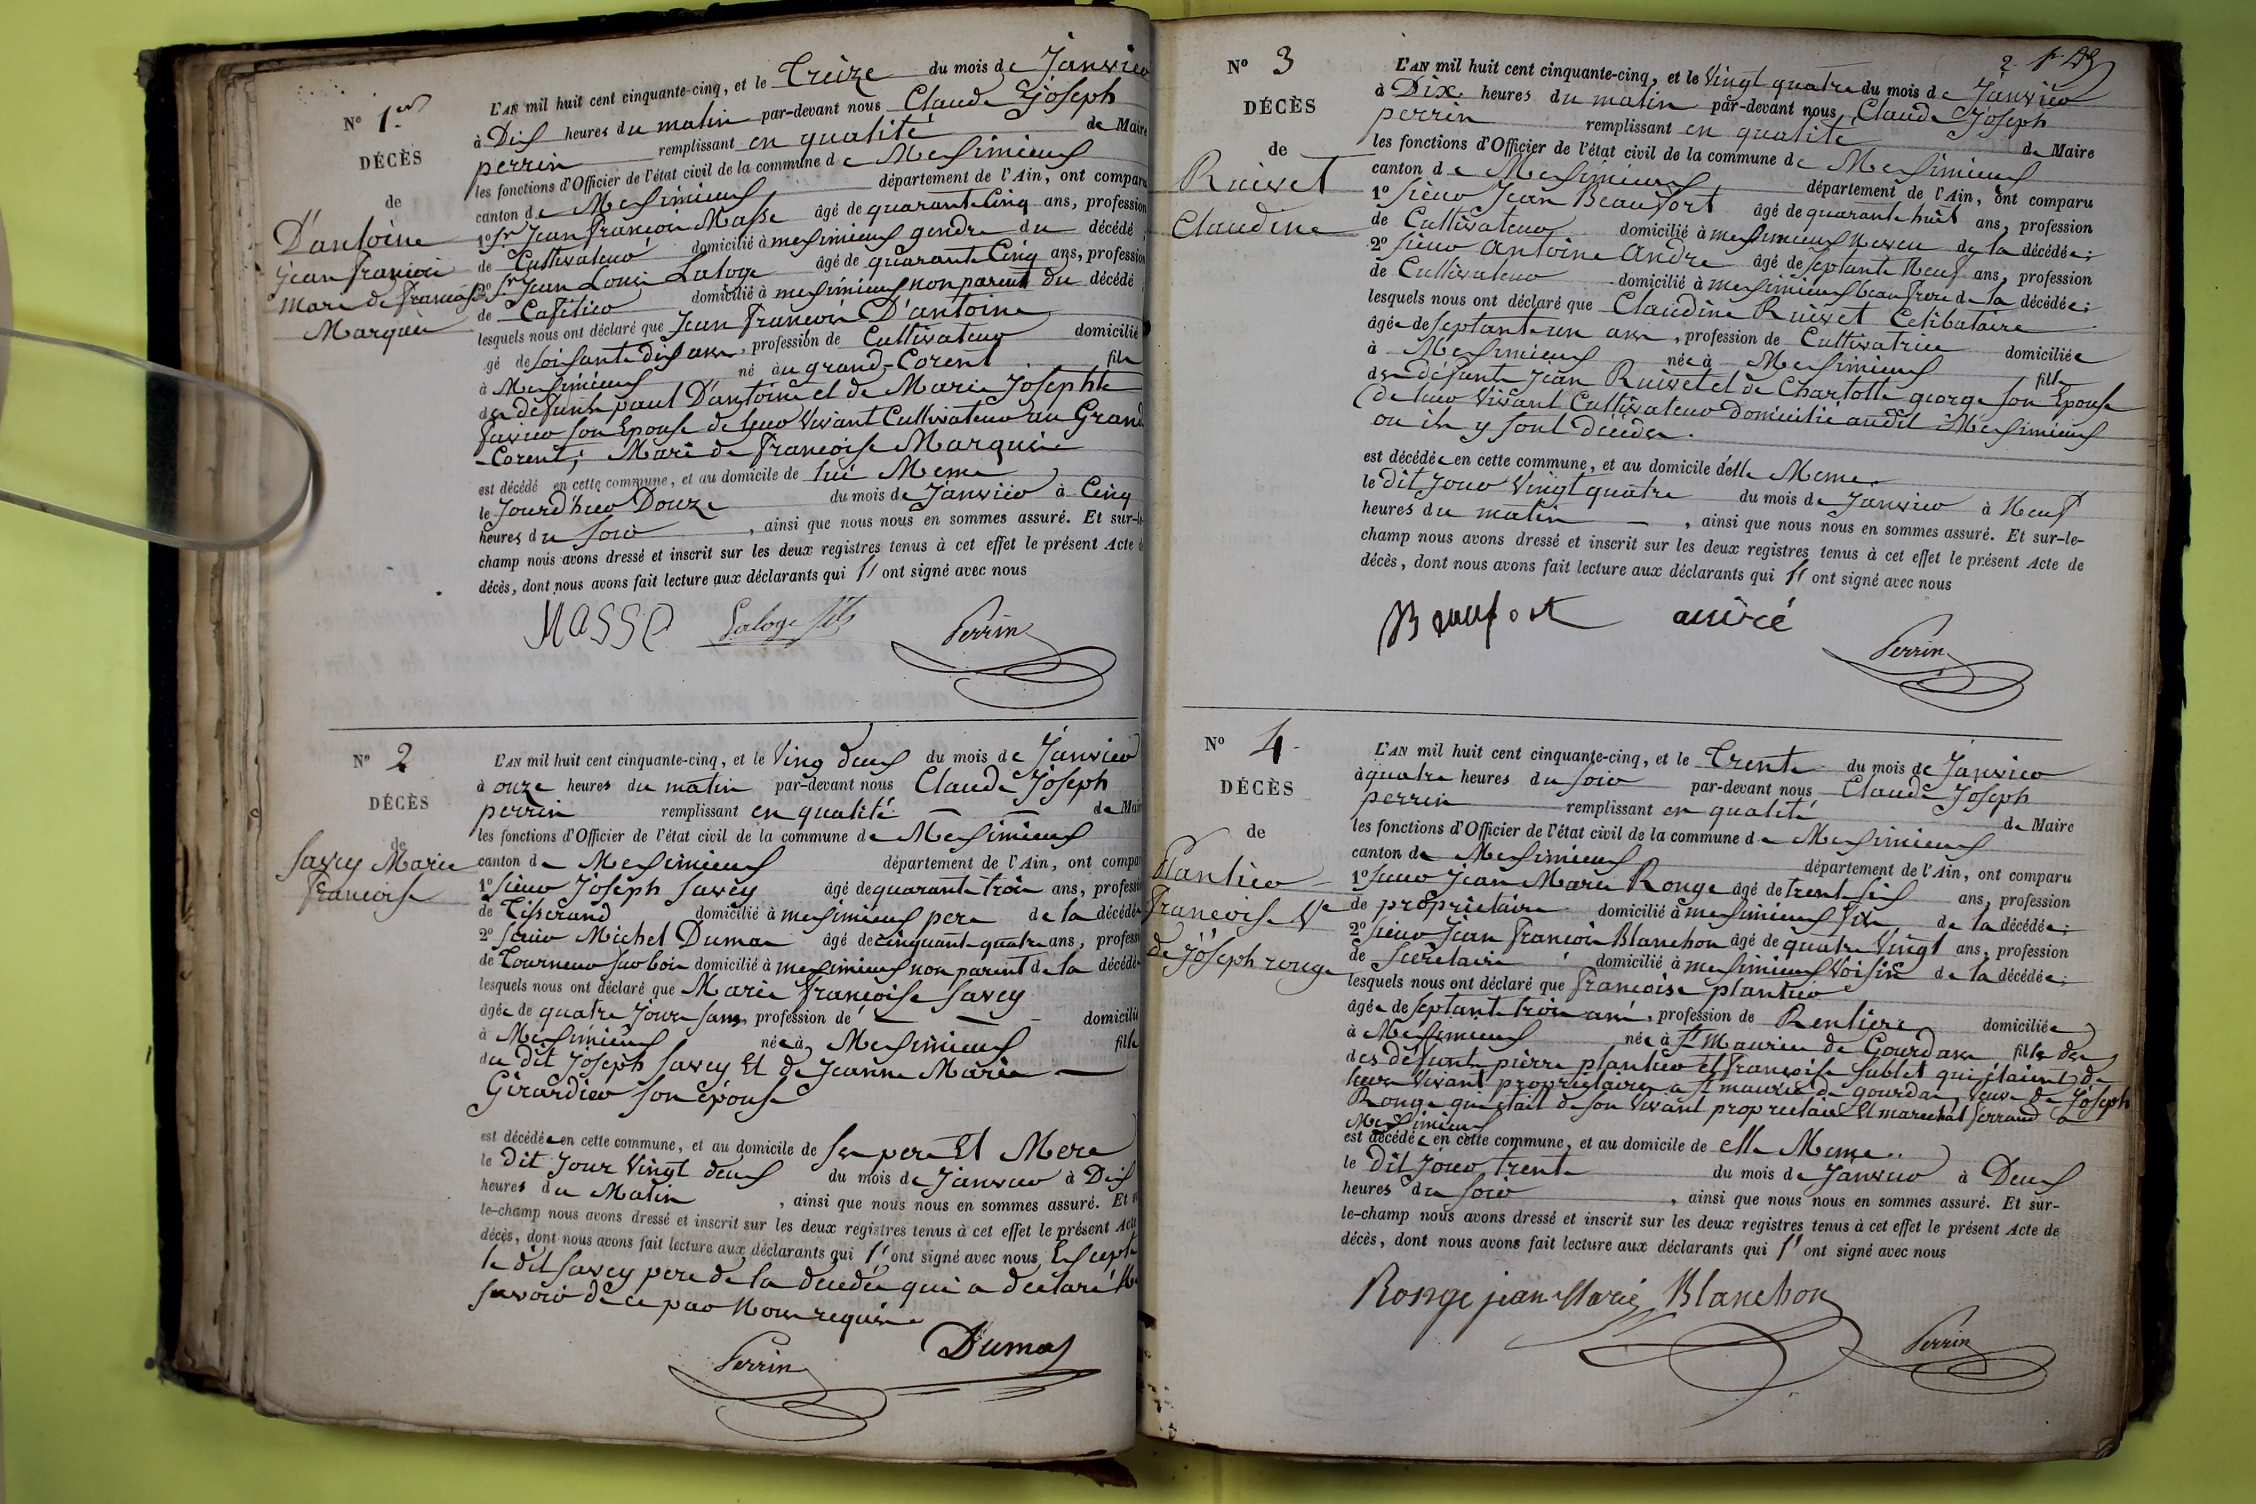 N° 1er
DÉCÈS
de
D'antoine
Jean françoi
Mari de françoise
Marquie
L'AN mil huit cent cinquante-cinq, et le Treize du mois de Janvier
à Dix heures du matin par-devant nous Claude Joseph
perrin remplissant en qualité de Maire
les fonctions d'Officier de l'état civil de la commune de Meximieux
canton de Meximieux département de l'Ain, ont comparu
1° Sr Jean françoi Masse âgé de quarante Cinq ans, profession
de Cultivateur domicilié à meximieux gendre du décédé
2° Sr Jean Loui Laloge âgé de quarante Cinq ans, profession
de Cafétier domicilié à meximieux non parent du décédé
lesquels nous ont déclaré que Jean françoi D'antoine
gé de soisante dix ans, profession de Cultivateur domicilié
à Meximieux né au grand-Corent fils
de défunts paul D'antoine et de Marie Josephte
son Epouse de leur Vivant Cultivateur au Grand
-Corent; Mari de françoise Marquie
est décédé en cette commune, et au domicile de lui Meme
le Jourd'hier Douze du mois de Janvier à Cinq
heures du soir, ainsi que nous nous en sommes assuré. Et sur-le-
champ nous avons dressé et inscrit sur les deux registres tenus à cet effet le présent Acte de
décès, dont nous avons fait lecture aux déclarants qui l' ont signé avec nous
MASSE Laloge fils Perrin
N° 2
DÉCÈS
de
Savey Marie
françoise
L'AN mil huit cent cinquante-cinq, et le Ving deux du mois de Janvier
à onze heures du matin par-devant nous Claude Joseph
perrin remplissant en qualité de Maire
les fonctions d'Officier de l'état civil de la commune de Meximieux
canton de Meximieux département de l'Ain, ont compar
1° Sieur Joseph Savey âgé de quarante troi ans, profess
de Tisserand domicilié à meximieux pere de la décédée
2° Sieur Michel Duma âgé de cinquante quatre ans, profess
de Tourneur sur boi domicilié à meximieux non parent de la décédée
lesquels nous ont déclaré que Marie françoise Savey
âgée de quatre Jours sans profession de domicilié
à Meximieux née à Meximieux fille
du dit Joseph Savey Et de Jeanne Marie
Girardier son épouse
est décédée en cette commune, et au domicile de ses pere Et Mere
le dit Jour Vingt deux du mois de Janvier à Dix
heures du Matin, ainsi que nous nous en sommes assuré. Et s
le-champ nous avons dressé et inscrit sur les deux registres tenus à cet effet le présent Acte
décès, dont nous avons fait lecture aux déclarants qui l' ont signé avec nous Excepté
le dit Savey pere de la décédée qui a déclaré Ne
savoir de ce par Nous requis
Perrin Dumas
2
N° 3
DÉCÈS
de
Ruivet
Claudine
L'AN mil huit cent cinquante-cinq, et le Vingt quatre du mois de Janvier
à Dix heures du matin par-devant nous Claude Joseph
perrin remplissant en qualité de Maire
les fonctions d'Officier de l'état civil de la commune de Meximieux
canton de Meximieux département de l'Ain, ont comparu
1° Sieur Jean Beaufort âgé de quarante huit ans, profession
de Cultivateur domicilié à meximieux Neveu de la décédée;
2° Sieur Antoine Andre âgé de septante Neuf ans, profession
de Cultivateur domicilié à meximieux beau frere de la décédée;
lesquels nous ont déclaré que Claudine Ruivet Celibataire
âgée de septante un ans, profession de Cultivatrice domiciliée
à Meximieux née à Meximieux fille
de défunts Jean Ruivet et de Charlotte george son Epouse
de leur Vivant Cultivateur Domicilié audit Meximieux
ou ils y sont décédés.
est décédée en cette commune, et au domicile d'elle Meme
le dit Jour Vingt quatre du mois de Janvier à Neuf
heures du matin, ainsi que nous nous en sommes assuré. Et sur-le-
champ nous avons dressé et inscrit sur les deux registres tenus à cet effet le présent Acte de
décès, dont nous avons fait lecture aux déclarants qui l' ont signé avec nous
Beaufort André Perrin
N° 4
DÉCÈS
de
Plantier
françoise Ve
de Joseph rouge
L'AN mil huit cent cinquante-cinq, et le Trente du mois de Janvier
à quatre heures du soir par-devant nous Claude Joseph
perrin remplissant en qualité de Maire
les fonctions d'Officier de l'état civil de la commune de Meximieux
canton de Meximieux département de l'Ain, ont comparu
1° Sieur Jean Marie Ronge âgé de trente six ans, profession
de proprietaire domicilié à meximieux fils de la décédée;
2° Sieur Jean françoi Blanchon âgé de quatre Vingt ans, profession
de Secretaire domicilié à meximieux Voisin de la décédée;
lesquels nous ont déclaré que françoise plantier
âgée de septante troi ans, profession de Rentiere domiciliée
à Meximieux née à St Maurice de Gourdans fille de
des défunt pierre plantier et françoise Sublet qui étaient de
leur Vivant proprietaires a St maurice de gourdan, Veuve de Joseph
Ronge qui était de son Vivant proprietaire Et marechal ferrand a
Meximieux
est décédée en cette commune, et au domicile de elle Meme
le Dit Jour trente du mois de Janvier à Deux
heures du soir, ainsi que nous nous en sommes assuré. Et sur-
le-champ nous avons dressé et inscrit sur les deux registres tenus à cet effet le présent Acte de
décès, dont nous avons fait lecture aux déclarants qui l' ont signé avec nous
Ronge jean Marie Blanchon
Perrin